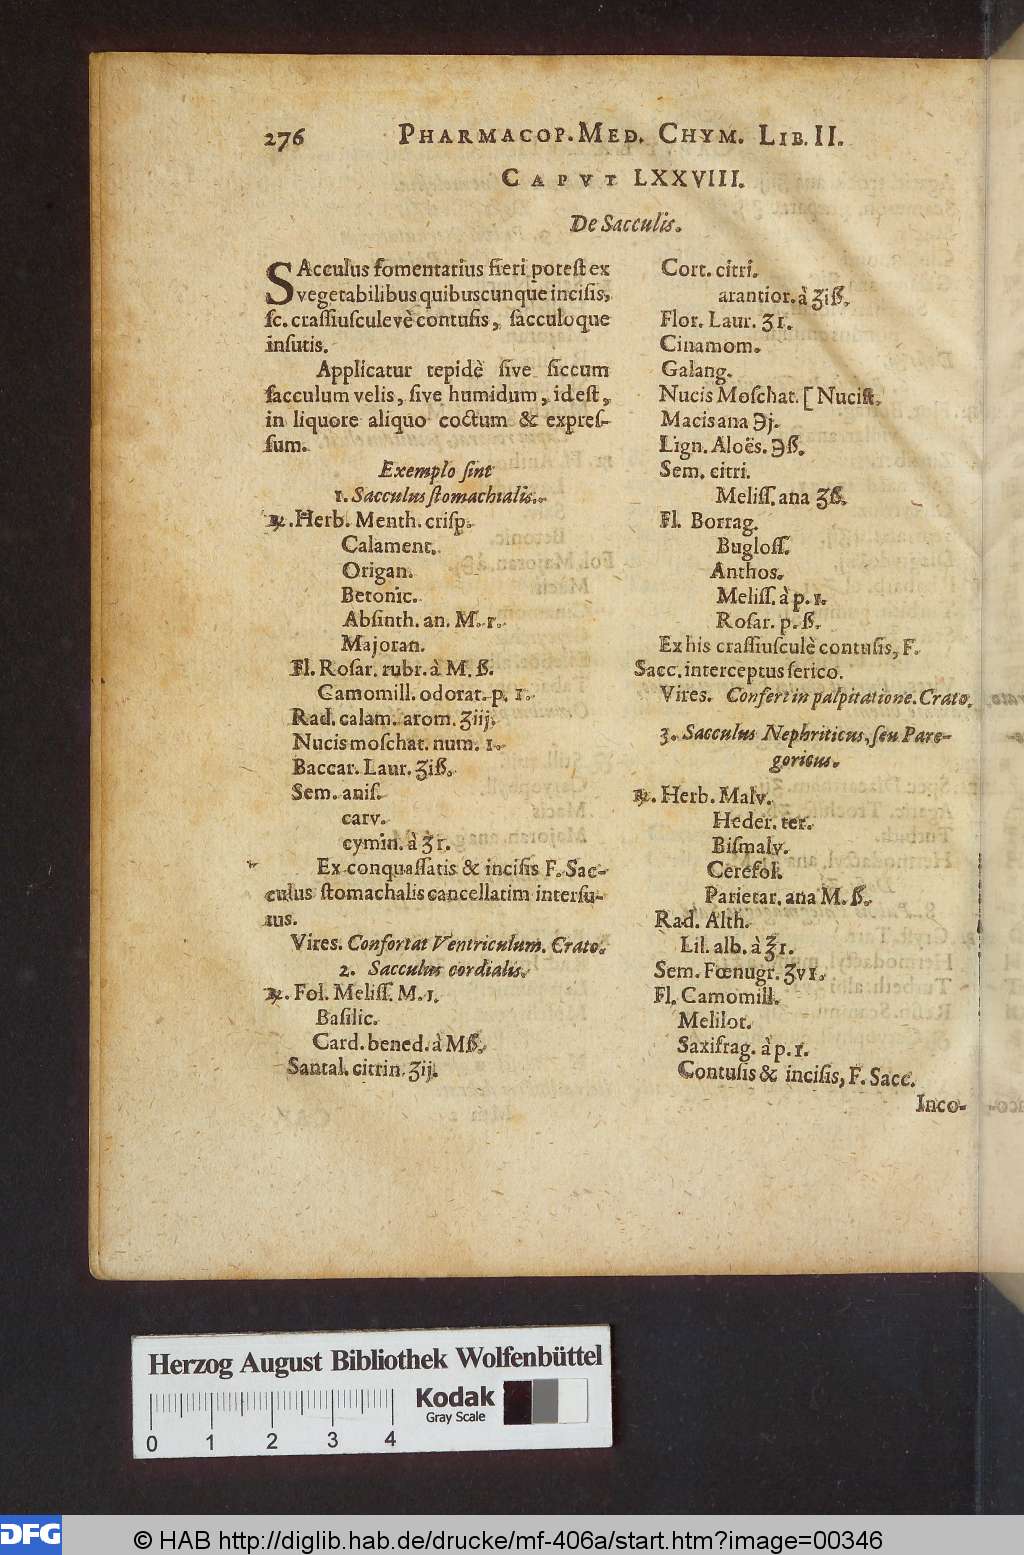 276 PHARMACOP. MED. CHYM. LIB. II.
CAPVT LXXVIII.
De Sacculis.
SAcculus fomentarius fieri potest ex
vegetabilibus quibuscunque incisis,
sc. crassiusculevè contusis, sacculoque
insutis.
Applicatur tepidè sive siccum
sacculum velis, sive humidum, id est,
in liquore aliquo coctum & expres-
sum.
Exemplo sint
1. Sacculus stomachialis.
℞. Herb. Menth. crisp.
Calament.
Origan.
Betonic.
Absinth. an. M. 1.
Majoran.
Fl. Rosar. rubr. à M. ß.
Camomill. odorat. p. 1.
Rad. calam. arom. ʒiij.
Nucis moschat. num. 1.
Baccar. Laur. ʒiß.
Sem. anis.
carv.
cymin. à ʒ1.
Ex conquassatis & incisis F. Sac-
culus stomachalis cancellatim intersu-
tus.
Vires. Confortat Ventriculum. Crato.
2. Sacculus cordialis.
℞. Fol. Meliss. M. 1.
Basilic.
Card. bened. à Mß.
Santal. citrin. ʒij.
Cort. citri.
arantior. à ʒiß.
Flor. Laur. ʒ1.
Cinamom.
Galang.
Nucis Moschat. [Nucist.
Macis ana ℈j.
Lign. Aloës. ℈ß.
Sem. citri.
Meliss. ana ʒß.
Fl. Borrag.
Bugloss.
Anthos.
Meliss. à p. 1.
Rosar. p. ß.
Ex his crassiusculè contusis, F.
Sacc. interceptus serico.
Vires. Confert in palpitatione. Crato.
3. Sacculus Nephriticus, seu Pare-
goricus.
℞. Herb. Malv.
Heder. ter.
Bismalv.
Cerefol.
Parietar. ana M. ß.
Rad. Alth.
Lil. alb. à ℥1.
Sem. Fœnugr. ʒv1.
Fl. Camomill.
Melilot.
Saxifrag. à p. 1.
Contusis & incisis, F. Sacc.
Inco-
Herzog August Bibliothek Wolfenbüttel
Kodak
Gray Scale
0 1 2 3 4
DFG
© HAB http://diglib.hab.de/drucke/mf-406a/start.htm?image=00346